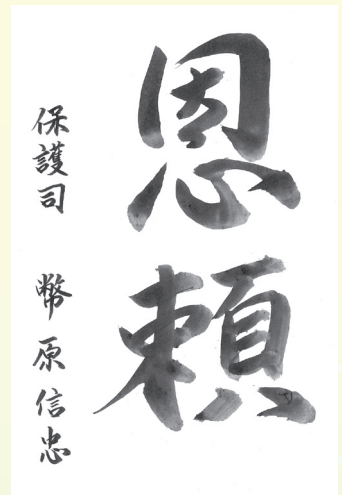 恩頼
保護司　幣原信忠